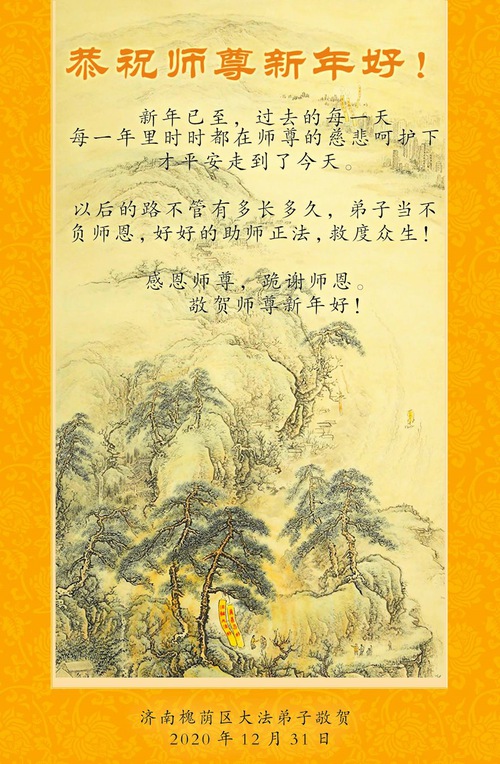 恭祝师尊新年好!
新年已至，过去的每一天
每一年里时时都在师尊的慈悲呵护下
才平安走到了今天。
以后的路不管有多长多久，弟子当不
负师恩，好好的助师正法，救度众生!
感恩师尊，跪谢师恩。
敬贺师尊新年好!
济南槐荫区大法弟子敬贺
2020年12月31日